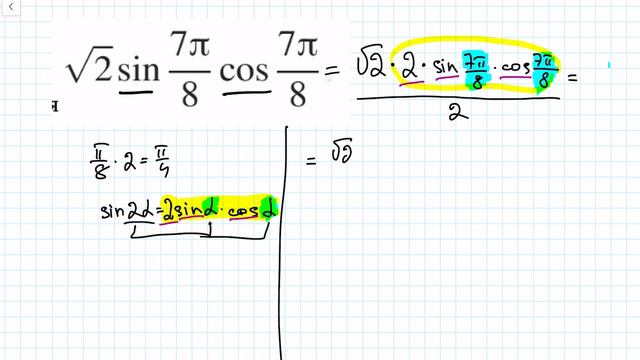 √2 sin 7π/8 cos 7π/8 = (√2 · 2 · sin 7π/8 · cos 7π/8)/2 =
я
π/8 · 2 = π/4
= √2
sin2α=2sinα·cosα